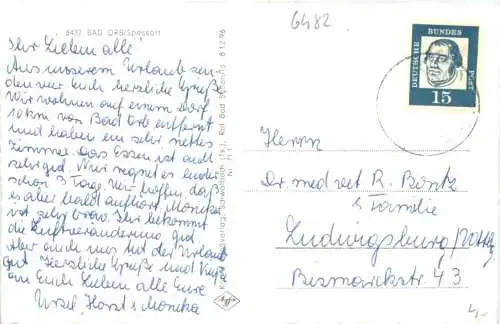 6482
6482 BAD ORB/Spessart
Ihr Lieben alle!
Aus unserem Urlaub sen-
den wir Euch herzliche Grüße
Wir wohnen auf einem Dorf
10 km von Bad Orb entfernt
und haben ein sehr nettes
Zimmer. Das Essen ist auch
sehr gut. Nur regnet es leider
schon 3 Tage. Wir hoffen, daß
es aber bald aufhört. Monika
ist sehr brav. Ihr bekommt
die Luftveränderung gut.
Aber auch uns tut der Urlaub
gut. Herzliche Grüße und Küsse
an Euch Lieben alle Eure
Ursel, Horst & Monika
Schwalbach (Ts.), Rot Bad
B 12 96
Agfa
DEUTSCHE BUNDES POST
15
Herrn
Dr. med vet R. Bontz
& Familie
Ludwigsburg/Wttbg
Bismarckstr 43
4,-